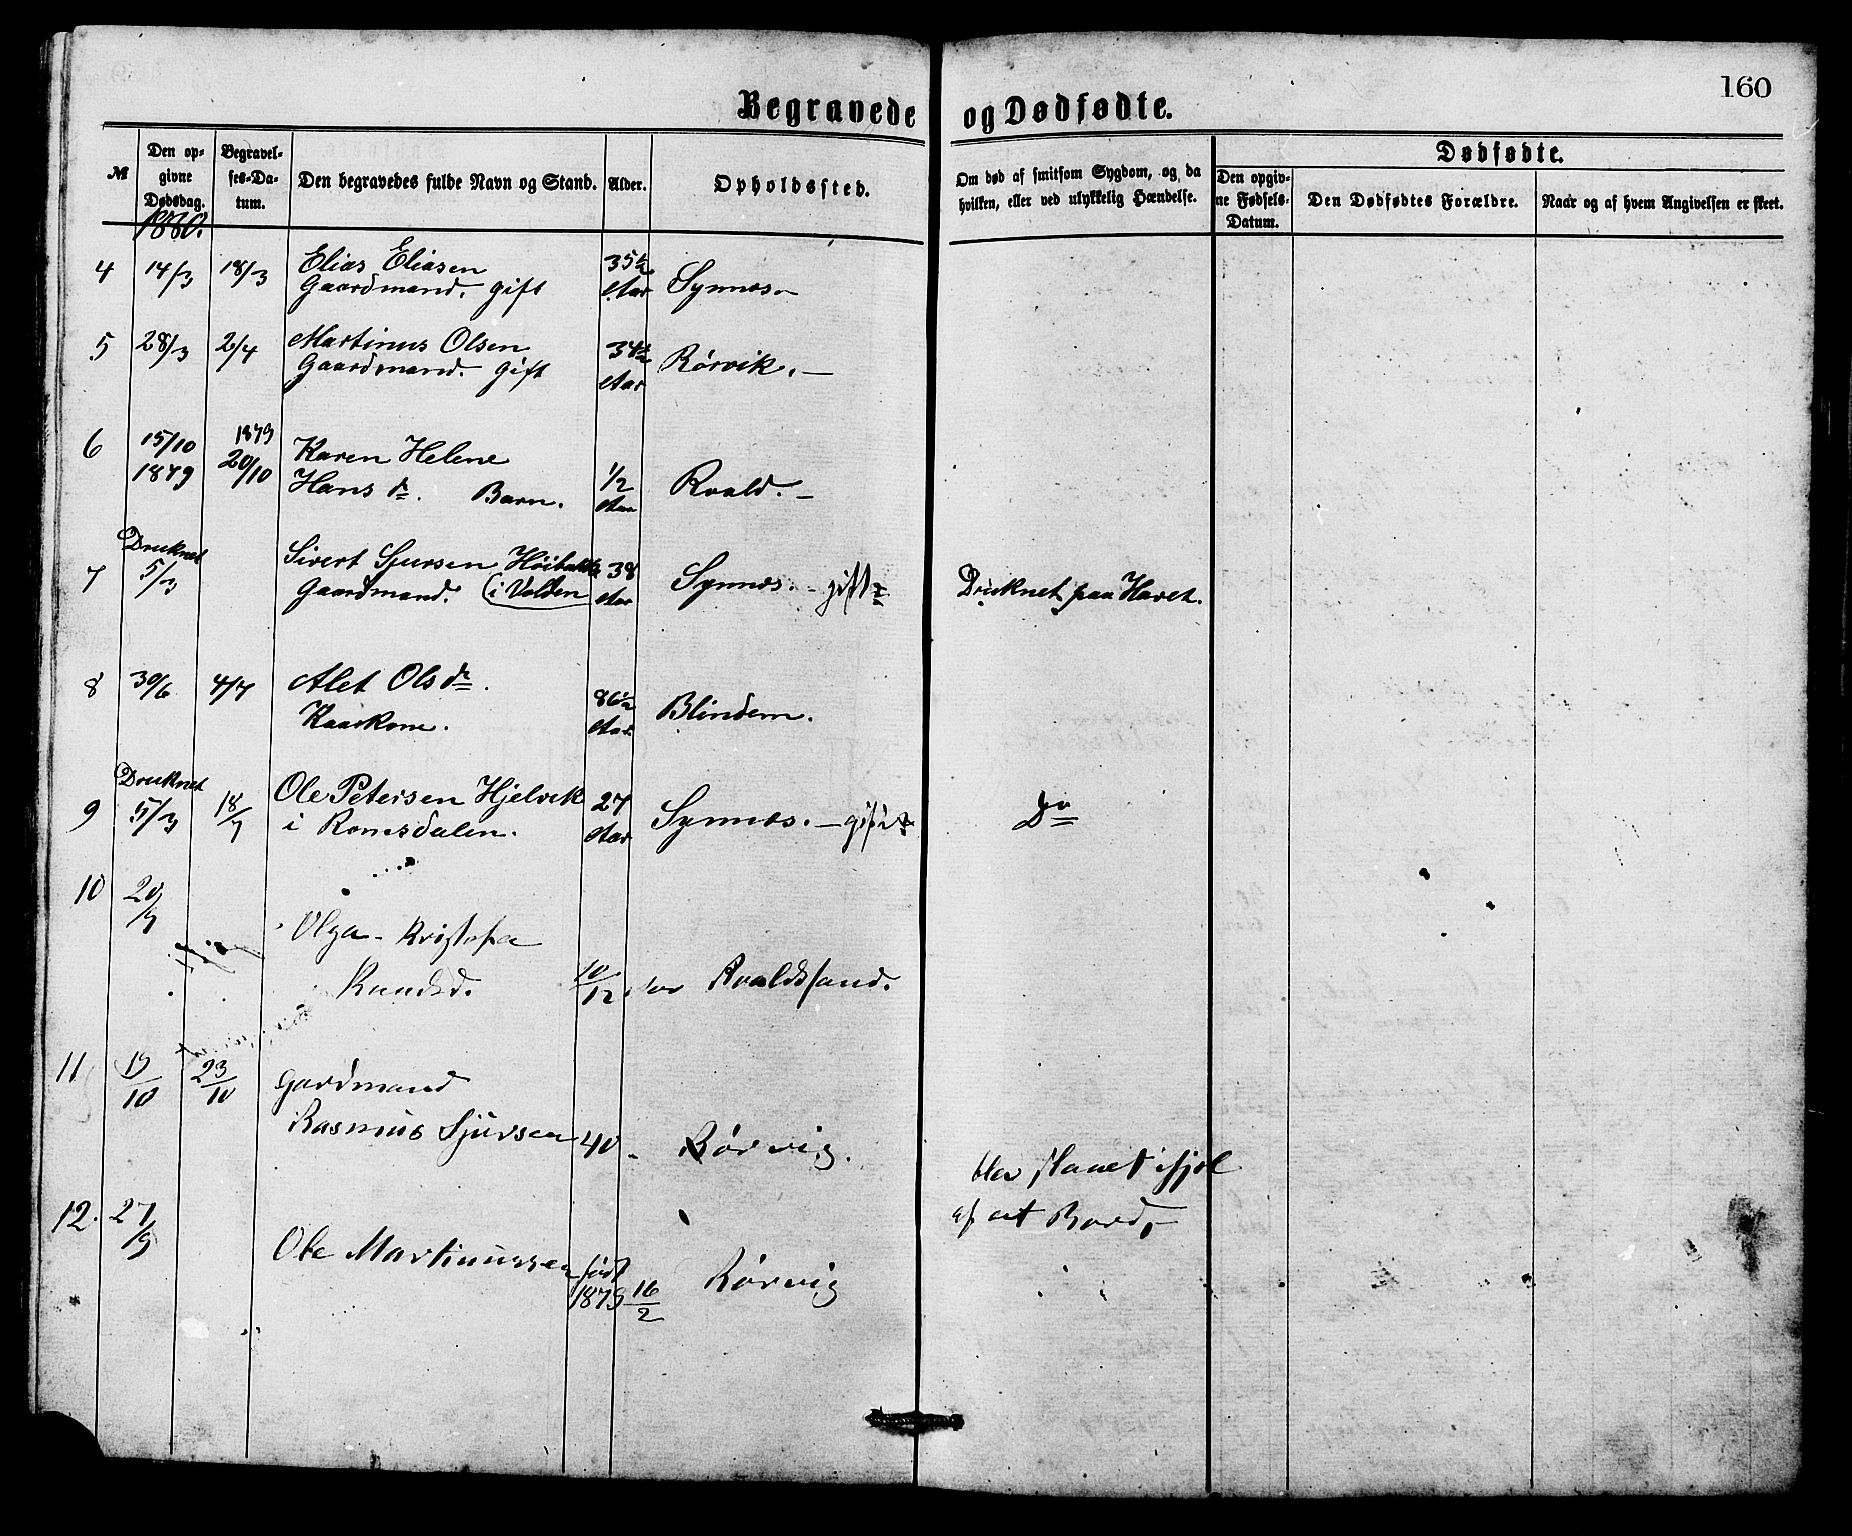 160
Begravede og Dødfødte.
№
Den opgivne Dødsdag.
Begravelses-Datum.
Den begravedes fulde Navn og Stand.
Alder.
Opholdssted.
Om død af smitsom Sygdom, og da hvilken, eller ved ulykkelig Hændelse.
Dødfødte.
Den opgivne Fødsels-Datum.
Den Dødfødtes Forældre.
Naar og af hvem Angivelsen er skeet.
1880.
4 14/3 18/3 Elias Eliasen 35 1/2
Gaardmand. gift Aar Synnes
5 28/3 2/4 Martinus Olsen 34 1/2
Gaardmand. gift Aar Rørvik.
6 15/10 1879 Karen Helene
1879 20/10 Hans dr. Barn. 1/2 Aar Roald.
Druknet
7 5/3 Sivert Sjursen 38 Synnes. gift Druknet paa Havet.
Gaardmand. (i Volden Aar
8 30/6 4/7 Alet Ols dr. 86 1/2 Blindem.
Kaarkone. Aar
Druknet
9 5/3 18/7 Ole Petersen Hjelvik 27 Synnes. gift Do
i Romsdalen. Aar
10 20/9 Olga Kristofa
Knudsd. 10/12 Aar Roaldsand.
11 19/10 23/10 Gardmand
Rasmus Sjursen 40 Rørvig.
blev slaaet ihjel
af et Bord,
12. 27/9 Ole Martinussen født Rørvig
1879 16/2